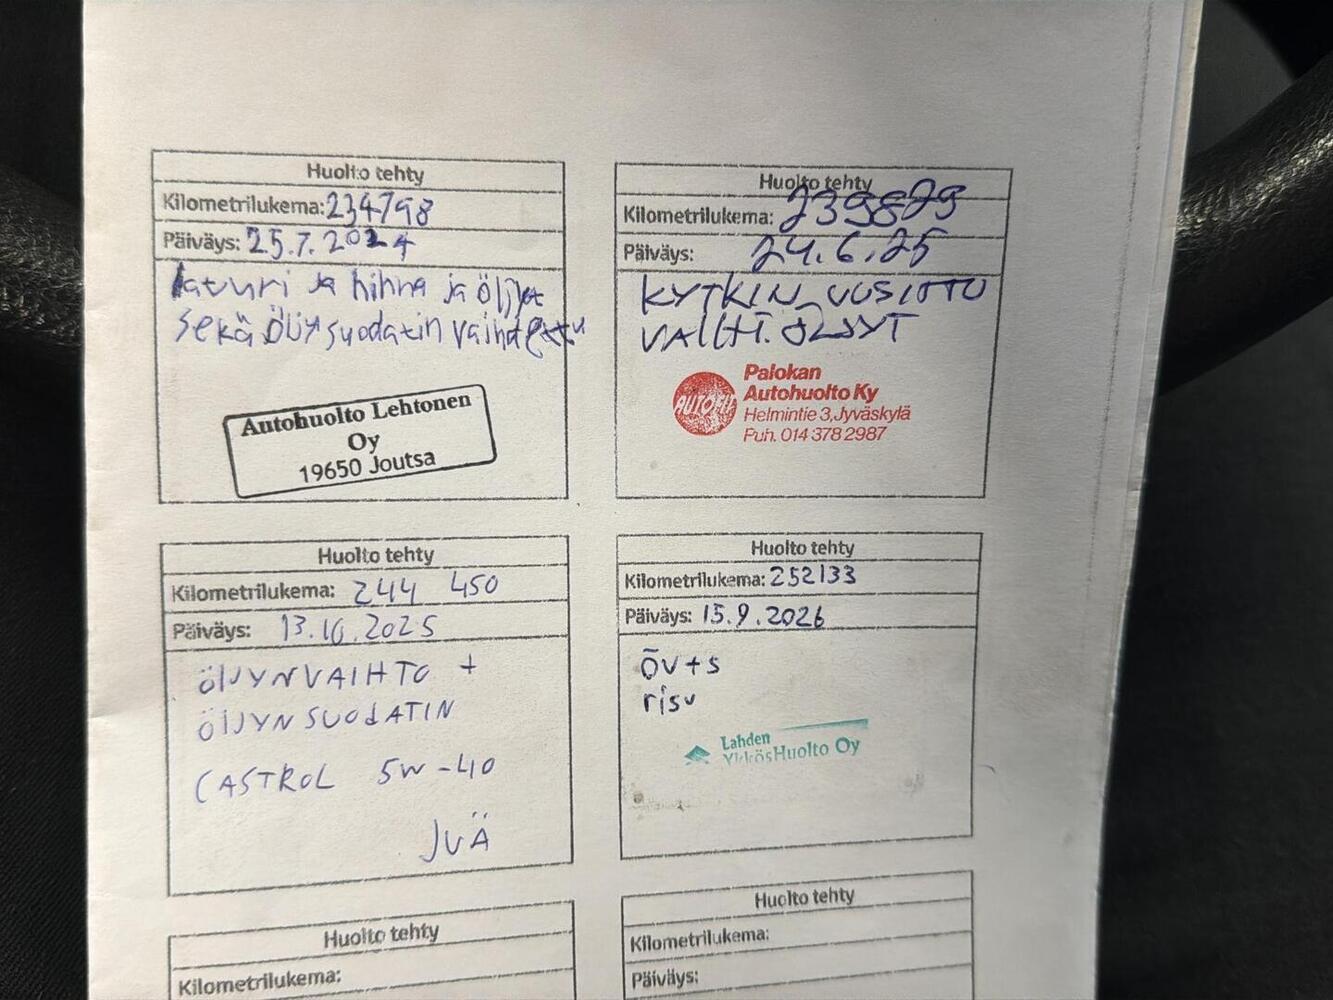 Huolto tehty
Kilometrilukema: 234798
Päiväys: 25.7.2024
Laturi ja hihna ja Öljyt
sekä Öljysuodatin vaihdettu
Autohuolto Lehtonen
Oy
19650 Joutsa
Huolto tehty
Kilometrilukema: 239829
Päiväys: 24.6.25
KYTKIN UUSITTU
VAIHT. ÖLJYT
AUTOFIT
Palokan
Autohuolto Ky
Helmintie 3, Jyväskylä
Puh. 014 378 2987
Huolto tehty
Kilometrilukema: 244 450
Päiväys: 13.10.2025
ÖLJYNVAIHTO +
ÖLJYNSUODATIN
CASTROL 5W-40
JVÄ
Huolto tehty
Kilometrilukema: 252133
Päiväys: 15.9.2026
öv+s
risu
Lahden
YkkösHuolto Oy
Huolto tehty
Kilometrilukema:
Huolto tehty
Kilometrilukema:
Päiväys: